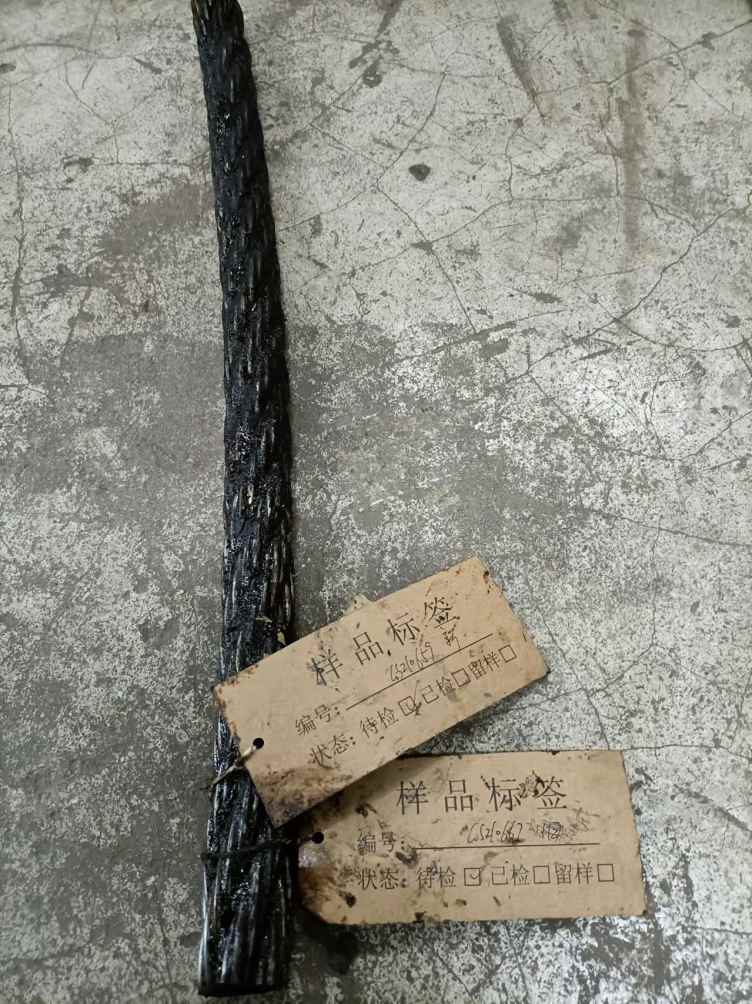 样品标签
编号:
状态: 待检☑已检□留样□
样品标签
编号:
状态: 待检☑已检□留样□